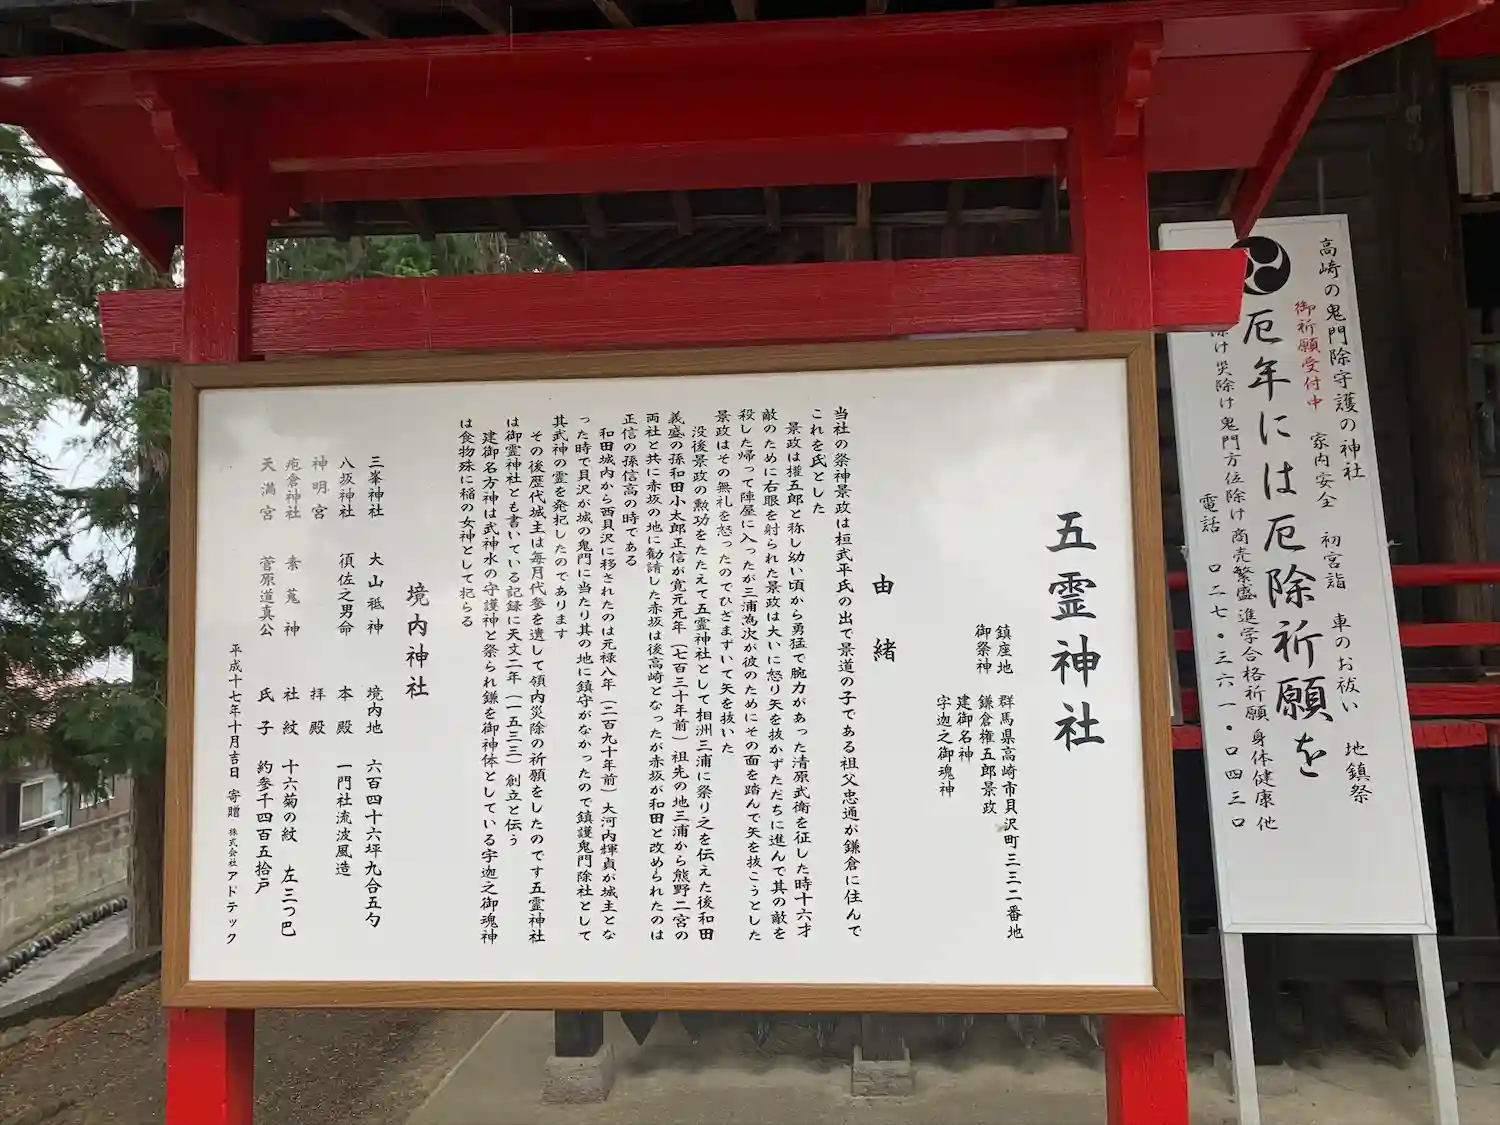 五霊神社
鎮座地 群馬県高崎市貝沢町三三二番地
御祭神 鎌倉権五郎景政
建御名神
宇迦之御魂神
由緒
当社の祭神景政は桓武平氏の出で景道の子である祖父忠通が鎌倉に住んで
これを氏とした
景政は権五郎と称し幼い頃から勇猛で腕力があった清原武衛を征した時十六才
敵のために右眼を射られた景政は大いに怒り矢を抜かずただちに進んで其の敵を
殺した帰って陣屋に入ったが三浦為次が彼のためにその面を踏んで矢を抜こうとした
景政はその無礼を怒ったのでひざまずいて矢を抜いた
没後景政の勲功をたたえて五霊神社として相洲三浦に祭り之を伝えた後和田
義盛の孫和田小太郎正信が寛元元年（七百三十年前）祖先の地三浦から熊野二宮の
両社と共に赤坂の地に勧請した赤坂は後高崎となったが赤坂が和田と改められたのは
正信の孫信高の時である
和田城内から西貝沢に移されたのは元禄八年（二百九十年前）大河内輝貞が城主とな
った時で貝沢が城の鬼門に当たり其の地に鎮守がなかったので鎮護鬼門除社として
其武神の霊を発祀したのであります
その後歴代城主は毎月代参を遣して領内災除の祈願をしたのです五霊神社
は御霊神社とも書いている記録に天文二年（一五三三）創立と伝う
建御名方神は武神水の守護神と祭られ鎌を御神体としている宇迦之御魂神
は食物殊に稲の女神として祀らる
境内神社
三峯神社 大山祗神 境内地 六百四十六坪九合五勺
八坂神社 須佐之男命 本殿 一門社流波風造
神明宮 拝殿
疱倉神社 素菟神 社紋 十六菊の紋 左三つ巴
天満宮 菅原道真公 氏子 約参千四百五拾戸
平成十七年十月吉日 寄贈 株式会社アドテック
高崎の鬼門除守護の神社
御祈願受付中 家内安全 初宮詣 車のお祓い 地鎮祭
厄年には厄除祈願を
除け災除け鬼門方位除け商売繁盛進学合格祈願身体健康他
電話 〇二七・三六一・〇四三〇